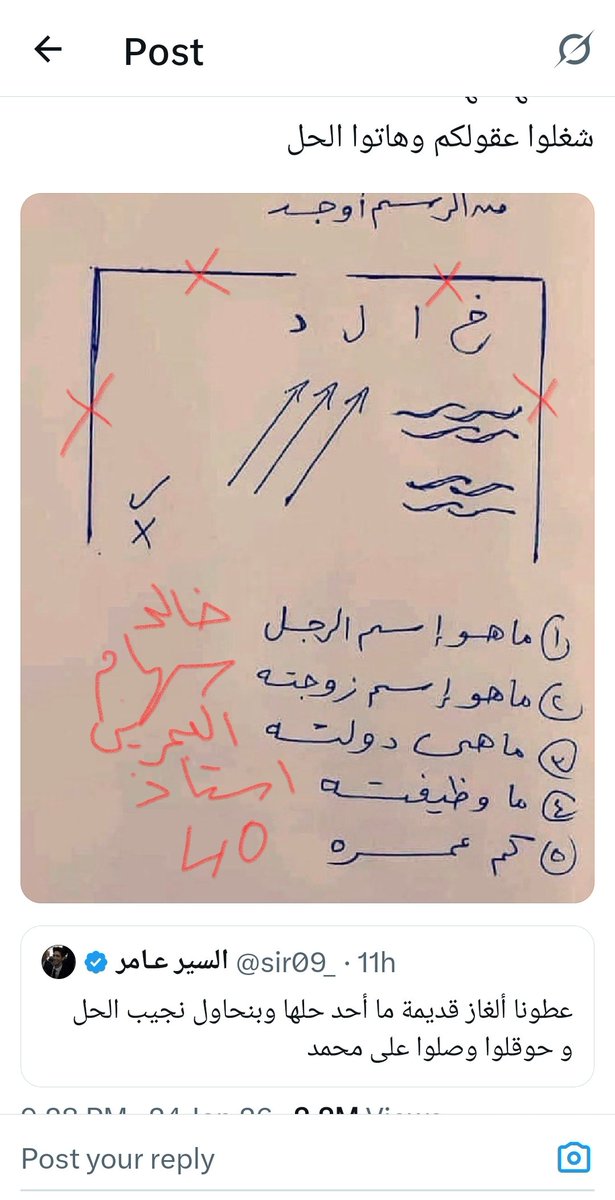 Post
شغلوا عقولكم وهاتوا الحل
من الرسم أوجد
خ ا ل د
✓
X
١ ماهو إسم الرجل
خالد
٢ ماهو إسم زوجته
سهام
٣ ماهى دولته
البحرين
٤ ما وظيفته
استاذ
٥ كم عمره
40
السير عـامر @sir09_ · 11h
عطونا ألغاز قديمة ما أحد حلها وبنحاول نجيب الحل
و حوقلوا وصلوا على محمد
Post your reply